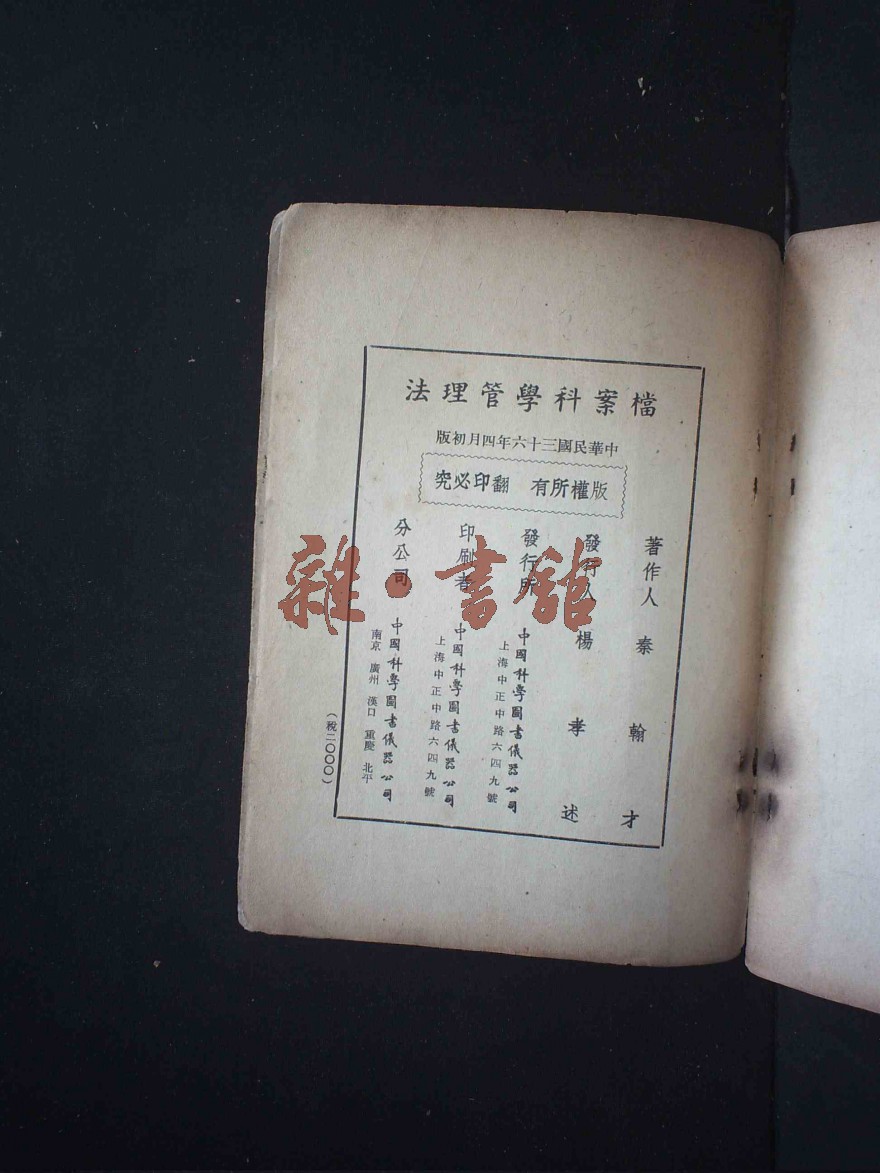 檔案科學管理法
中華民國三十六年四月初版
版權所有 翻印必究
著作人 秦翰才
發行人 楊孝述
發行所 中國科學圖書儀器公司
上海中正中路六四九號
印刷者 中國科學圖書儀器公司
上海中正中路六四九號
分公司 中國科學圖書儀器公司
南京 廣州 漢口 重慶 北平
(稅二〇〇〇)
雜·書館